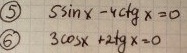 ⑤ 5sinx - 4ctgx = 0
⑥ 3cosx + 2tgx = 0